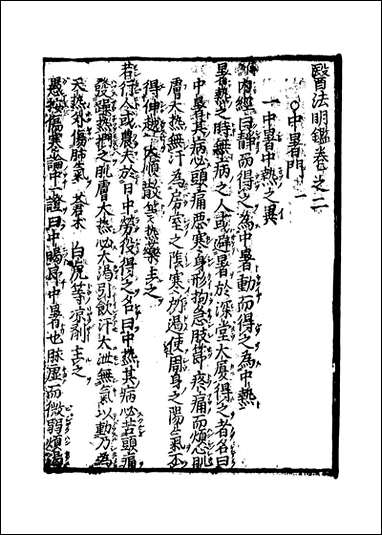 醫法明鑑卷之二
○中暑門 一
一中暑中熱之異
內經曰靜而得之為中暑動而得之為中熱
暑熱之時無病之人或避暑於深堂大厦得之者名曰
中暑其病必頭痛惡寒身形拘急肢節疼痛而煩心肌
膚大熱無汗為房室之陰寒所遏使周身之陽氣不
得伸越大順散等熱藥主之
若行人或農夫於日中勞役得之名曰中熱其病必苦頭痛
發躁熱捫之肌膚大熱必大渴引飲汗大泄無氣以動乃為
天熱外傷肺氣 蒼朮 白虎等凉劑主之
愚按傷寒論中一證曰中暍即中暑也脉虛而微弱煩渴